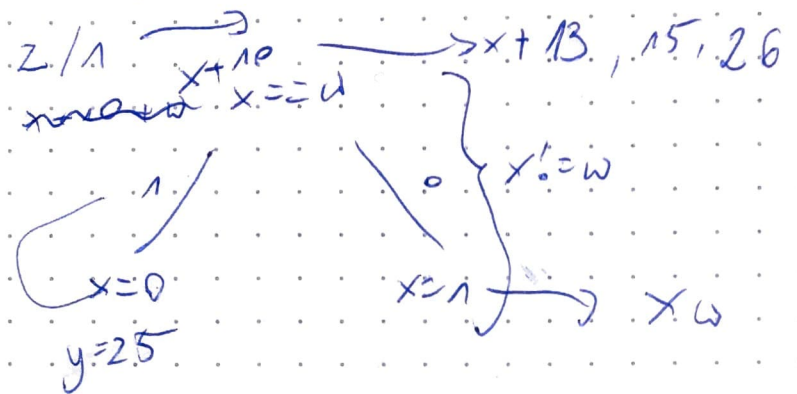 z/1 → x+10 → x+13, 15, 26
x==w
1 0 x!=w
x=0 x=1 → xw
y=25